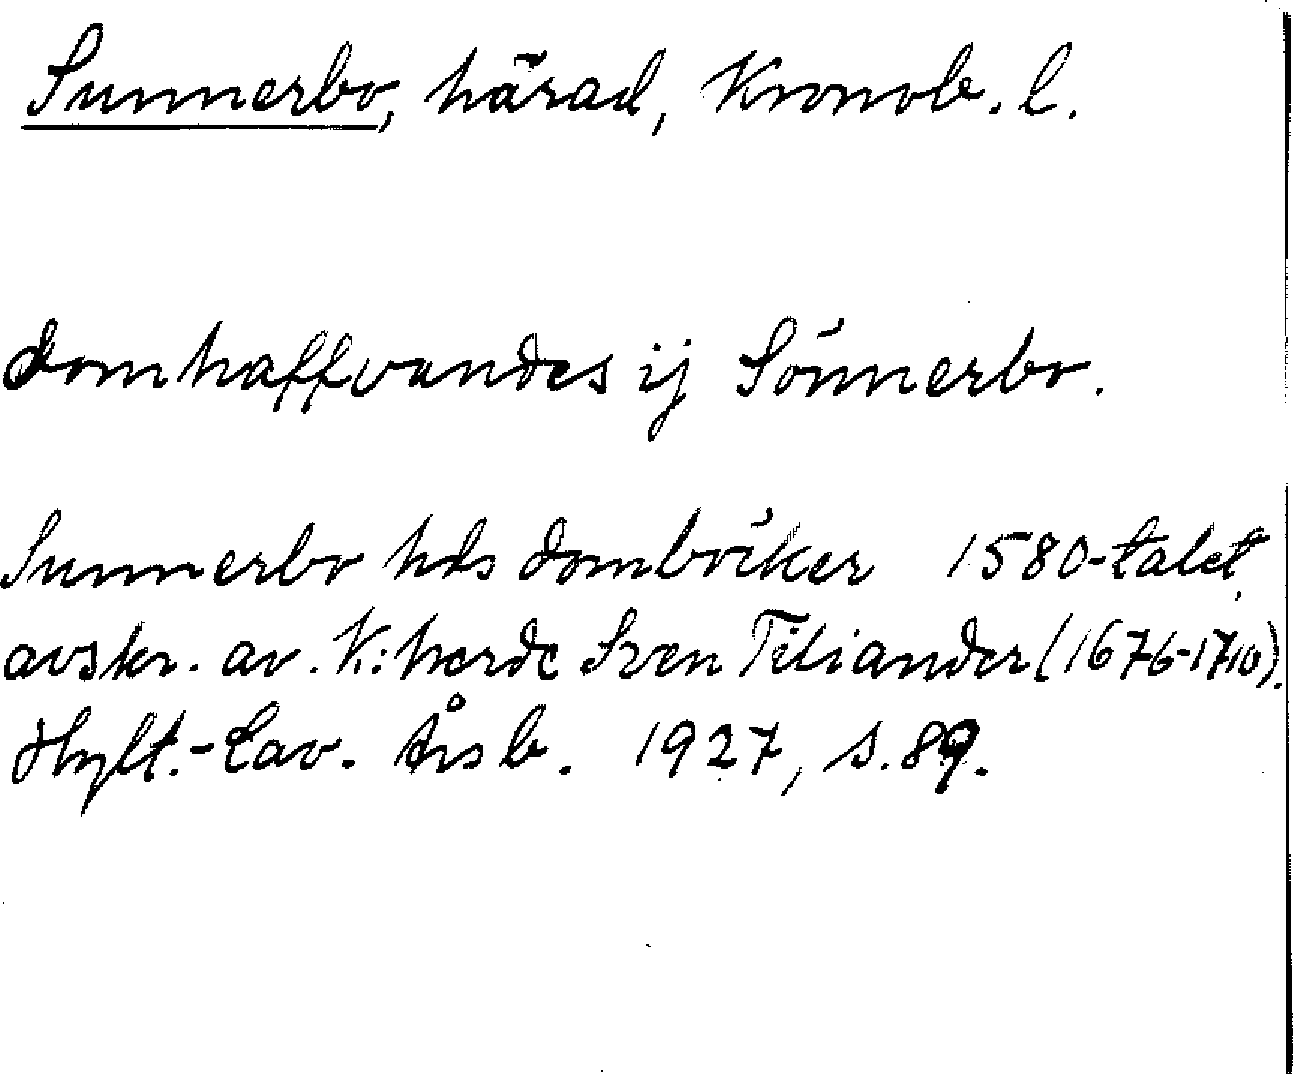 Sunnerbo, härad, Kronob. l.
domhaffvandes ij Sönnerbo.
Sunnerbo hds domböker 1580-talet,
avskr. av. K:herde Sven Tiliander (1676-1710).
Hylt.-Cav. Årsb. 1927, s. 89.